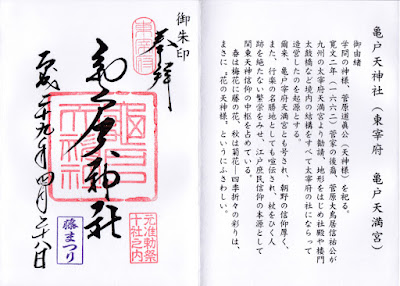 亀戸天神社（東宰府　亀戸天満宮）
御由緒
学問の神様、菅原道真公（天神様）を祀る。
寛文二年（一六六二）菅家の後裔、菅原大鳥居信祐公が
九州の太宰府天満宮より勧請、地形をはじめ社殿や楼門
太鼓橋など境内の結構をすべて太宰府の社にならって
造営したのを起源とする。
爾来、亀戸宰府天満宮とも号され、朝野の信仰厚く、
また、行楽の名勝地としても喧伝され、杖をひく人
跡を絶たない繁栄をみせ、江戸庶民信仰の本源として
関東天神信仰の中枢を占めている。
春は梅花に藤の花、秋は菊花―四季折々の彩りは、
まさに『花の天神様』というにふさわしい。
御朱印
奉拝
東宰府
亀戸天神社
元准勅祭
十社之内
藤まつり
平成二十九年四月二十八日